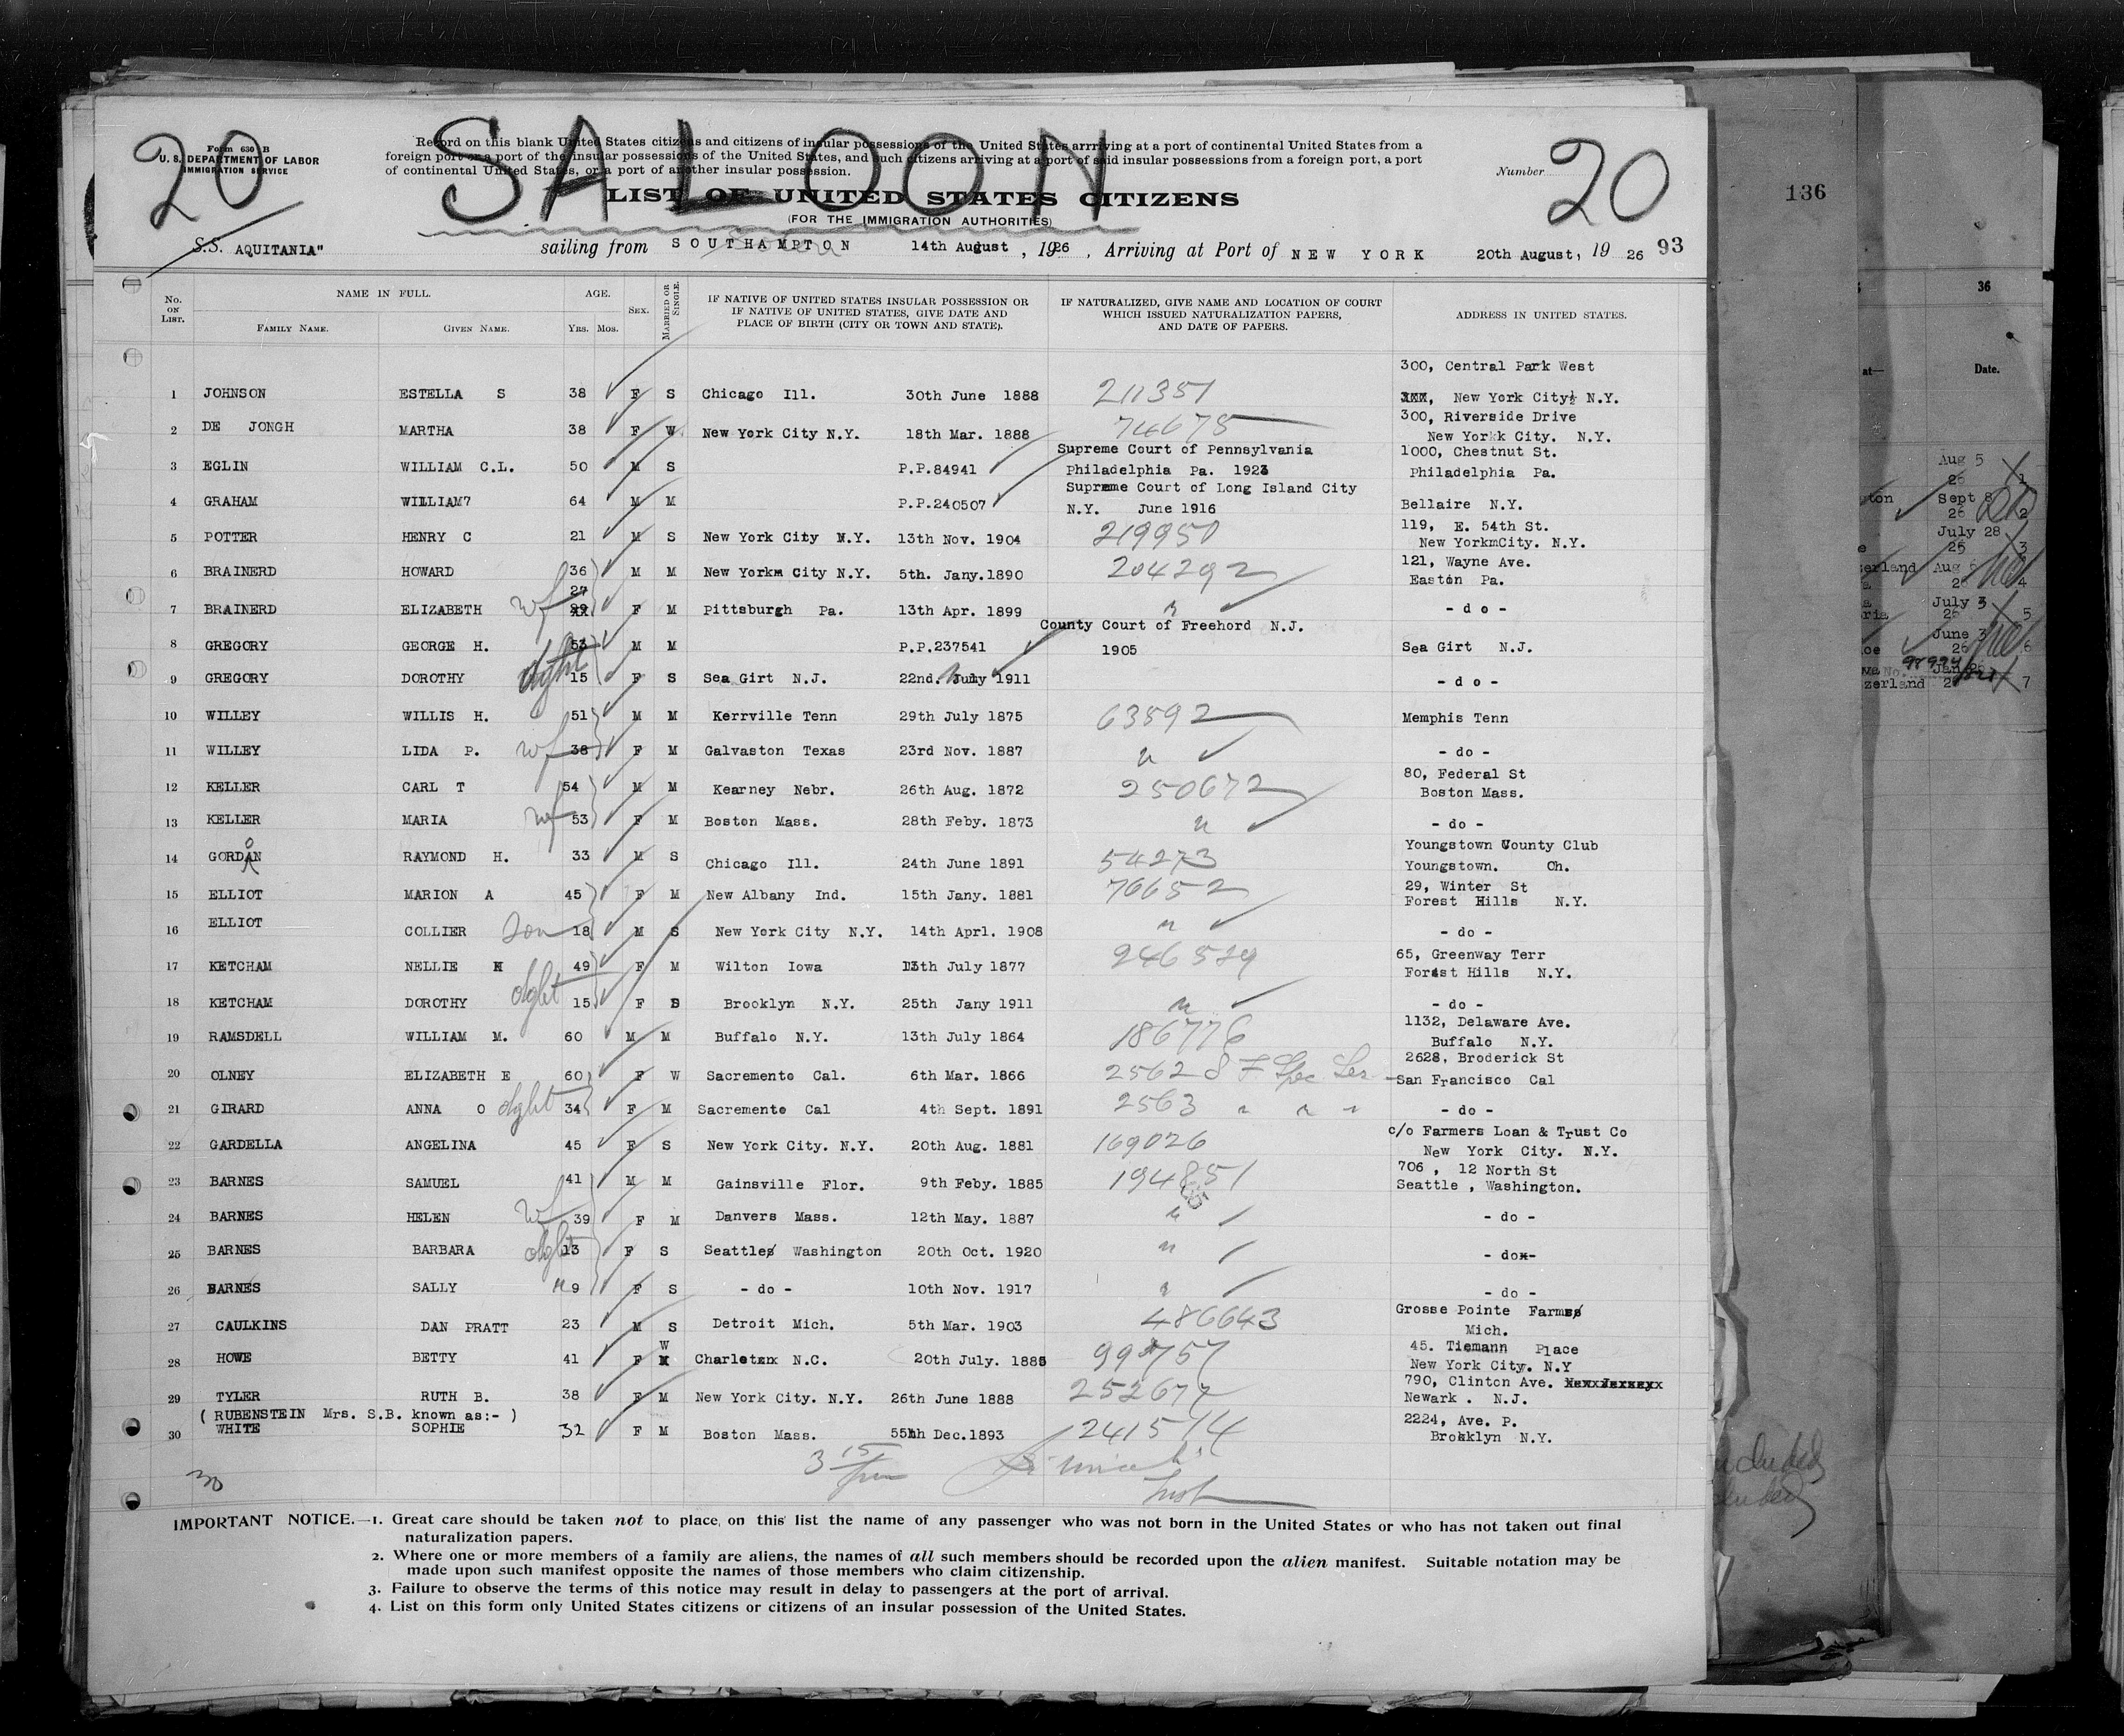 20 SALOON 20
Form 630 B
U. S. DEPARTMENT OF LABOR
IMMIGRATION SERVICE
Record on this blank United States citizens and citizens of insular possessions of the United States arrriving at a port of continental United States from a
foreign port or a port of the insular possessions of the United States, and such citizens arriving at a port of said insular possessions from a foreign port, a port
of continental United States, or a port of another insular possession.
Number
LIST OF UNITED STATES CITIZENS
(FOR THE IMMIGRATION AUTHORITIES)
S.S. AQUITANIA" sailing from SOUTHAMPTON 14th August, 1926, Arriving at Port of NEW YORK 20th August, 1926 93
No. ON LIST. NAME IN FULL. FAMILY NAME. GIVEN NAME. AGE. YRS. MOS. SEX. MARRIED OR SINGLE. IF NATIVE OF UNITED STATES INSULAR POSSESSION OR IF NATIVE OF UNITED STATES, GIVE DATE AND PLACE OF BIRTH (CITY OR TOWN AND STATE). IF NATURALIZED, GIVE NAME AND LOCATION OF COURT WHICH ISSUED NATURALIZATION PAPERS, AND DATE OF PAPERS. ADDRESS IN UNITED STATES.
300, Central Park West
1 JOHNSON ESTELLA S 38 F S Chicago Ill. 30th June 1888 211351 New York City N.Y.
300, Riverside Drive
2 DE JONGH MARTHA 38 F W New York City N.Y. 18th Mar. 1888 74675 New Yorkk City. N.Y.
Supreme Court of Pennsylvania 1000, Chestnut St.
3 EGLIN WILLIAM C.L. 50 M S P.P.84941 Philadelphia Pa. 1923 Philadelphia Pa.
Supreme Court of Long Island City
4 GRAHAM WILLIAM7 64 M M P.P.240507 N.Y. June 1916 Bellaire N.Y.
119, E. 54th St.
5 POTTER HENRY C 21 M S New York City N.Y. 13th Nov. 1904 219950 New YorkmCity. N.Y.
121, Wayne Ave.
6 BRAINERD HOWARD 36 M M New Yorkm City N.Y. 5th. Jany.1890 204292 Easton Pa.
27
7 BRAINERD ELIZABETH wf F M Pittsburgh Pa. 13th Apr. 1899 " - d o -
County Court of Freehord N.J.
8 GREGORY GEORGE H. 53 M M P.P.237541 1905 Sea Girt N.J.
9 GREGORY DOROTHY dght 15 F S Sea Girt N.J. 22nd. July 1911 - d o -
10 WILLEY WILLIS H. 51 M M Kerrville Tenn 29th July 1875 63592 Memphis Tenn
11 WILLEY LIDA P. wf 38 F M Galvaston Texas 23rd Nov. 1887 " - do -
80, Federal St
12 KELLER CARL T 54 M M Kearney Nebr. 26th Aug. 1872 250672 Boston Mass.
13 KELLER MARIA wf 53 F M Boston Mass. 28th Feby. 1873 " - do -
Youngstown County Club
14 GORDON RAYMOND H. 33 M S Chicago Ill. 24th June 1891 54273 Youngstown. Oh.
29, Winter St
15 ELLIOT MARION A 45 F M New Albany Ind. 15th Jany. 1881 76652 Forest Hills N.Y.
16 ELLIOT COLLIER Son 18 M S New York City N.Y. 14th Aprl. 1908 " - do -
65, Greenway Terr
17 KETCHAM NELLIE 49 F M Wilton Iowa 13th July 1877 246529 Forest Hills N.Y.
18 KETCHAM DOROTHY dght 15 F S Brooklyn N.Y. 25th Jany 1911 " - do -
1132, Delaware Ave.
19 RAMSDELL WILLIAM M. 60 M M Buffalo N.Y. 13th July 1864 186776 Buffalo N.Y.
2628, Broderick St
20 OLNEY ELIZABETH E 60 F W Sacremento Cal. 6th Mar. 1866 2562 S F Spec Ser San Francisco Cal
21 GIRARD ANNA O dght 34 F M Sacremento Cal 4th Sept. 1891 2563 " " " - do -
c/o Farmers Loan & Trust Co
22 GARDELLA ANGELINA 45 F S New York City. N.Y. 20th Aug. 1881 169026 New York City. N.Y.
706 , 12 North St
23 BARNES SAMUEL 41 M M Gainsville Flor. 9th Feby. 1885 194851 Seattle , Washington.
24 BARNES HELEN wf 39 F M Danvers Mass. 12th May. 1887 " - do -
25 BARNES BARBARA dght 13 F S Seattle Washington 20th Oct. 1920 " - dox-
26 BARNES SALLY " 9 F S - do - 10th Nov. 1917 " - do -
Grosse Pointe Farms
27 CAULKINS DAN PRATT 23 M S Detroit Mich. 5th Mar. 1903 486643 Mich.
W 45. Tiemann Place
28 HOWE BETTY 41 F Charlotxn N.C. 20th July. 1885 99757 New York City. N.Y
790, Clinton Ave.
29 TYLER RUTH B. 38 F M New York City. N.Y. 26th June 1888 252677 Newark . N.J.
( RUBENSTEIN Mrs. S.B. known as:- ) 2224, Ave. P.
30 WHITE SOPHIE 32 F M Boston Mass. 5th Dec.1893 241514 Brooklyn N.Y.
30
IMPORTANT NOTICE.—1. Great care should be taken not to place on this list the name of any passenger who was not born in the United States or who has not taken out final
naturalization papers.
2. Where one or more members of a family are aliens, the names of all such members should be recorded upon the alien manifest. Suitable notation may be
made upon such manifest opposite the names of those members who claim citizenship.
3. Failure to observe the terms of this notice may result in delay to passengers at the port of arrival.
4. List on this form only United States citizens or citizens of an insular possession of the United States.
136
36
at—
Date.
Aug 5
26 1
Sept 8
26 2
July 28
25 3
erland Aug 6
26 4
July 3
26 5
June 3
26 6
Jan 26
zerland 7